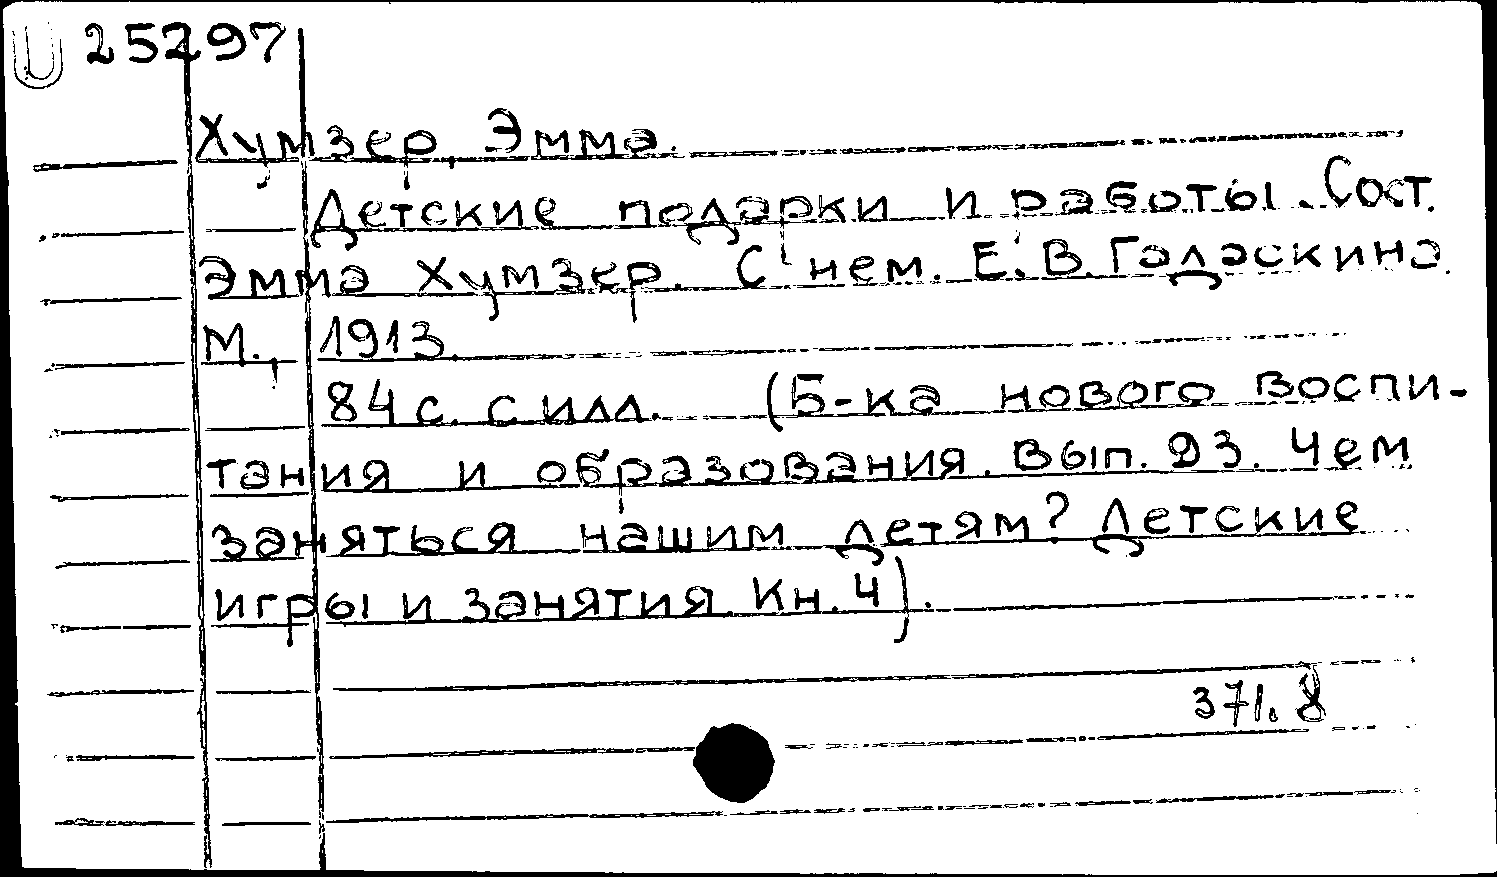 25297
Хумзер, Эмма.
Детские подарки и работы. Сост.
Эмма Хумзер. С нем. Е. В. Гадаскина.
М., 1913.
84 с. с илл. (Б-ка нового воспи-
тания и образования. Вып. 93. Чем
заняться нашим детям? Детские
игры и занятия. Кн. 4).
371.8